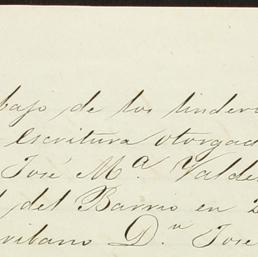 bajo de los linder
escritura otorgad
José Mª. Valde
del Barrio en 2
cribano Dn. José